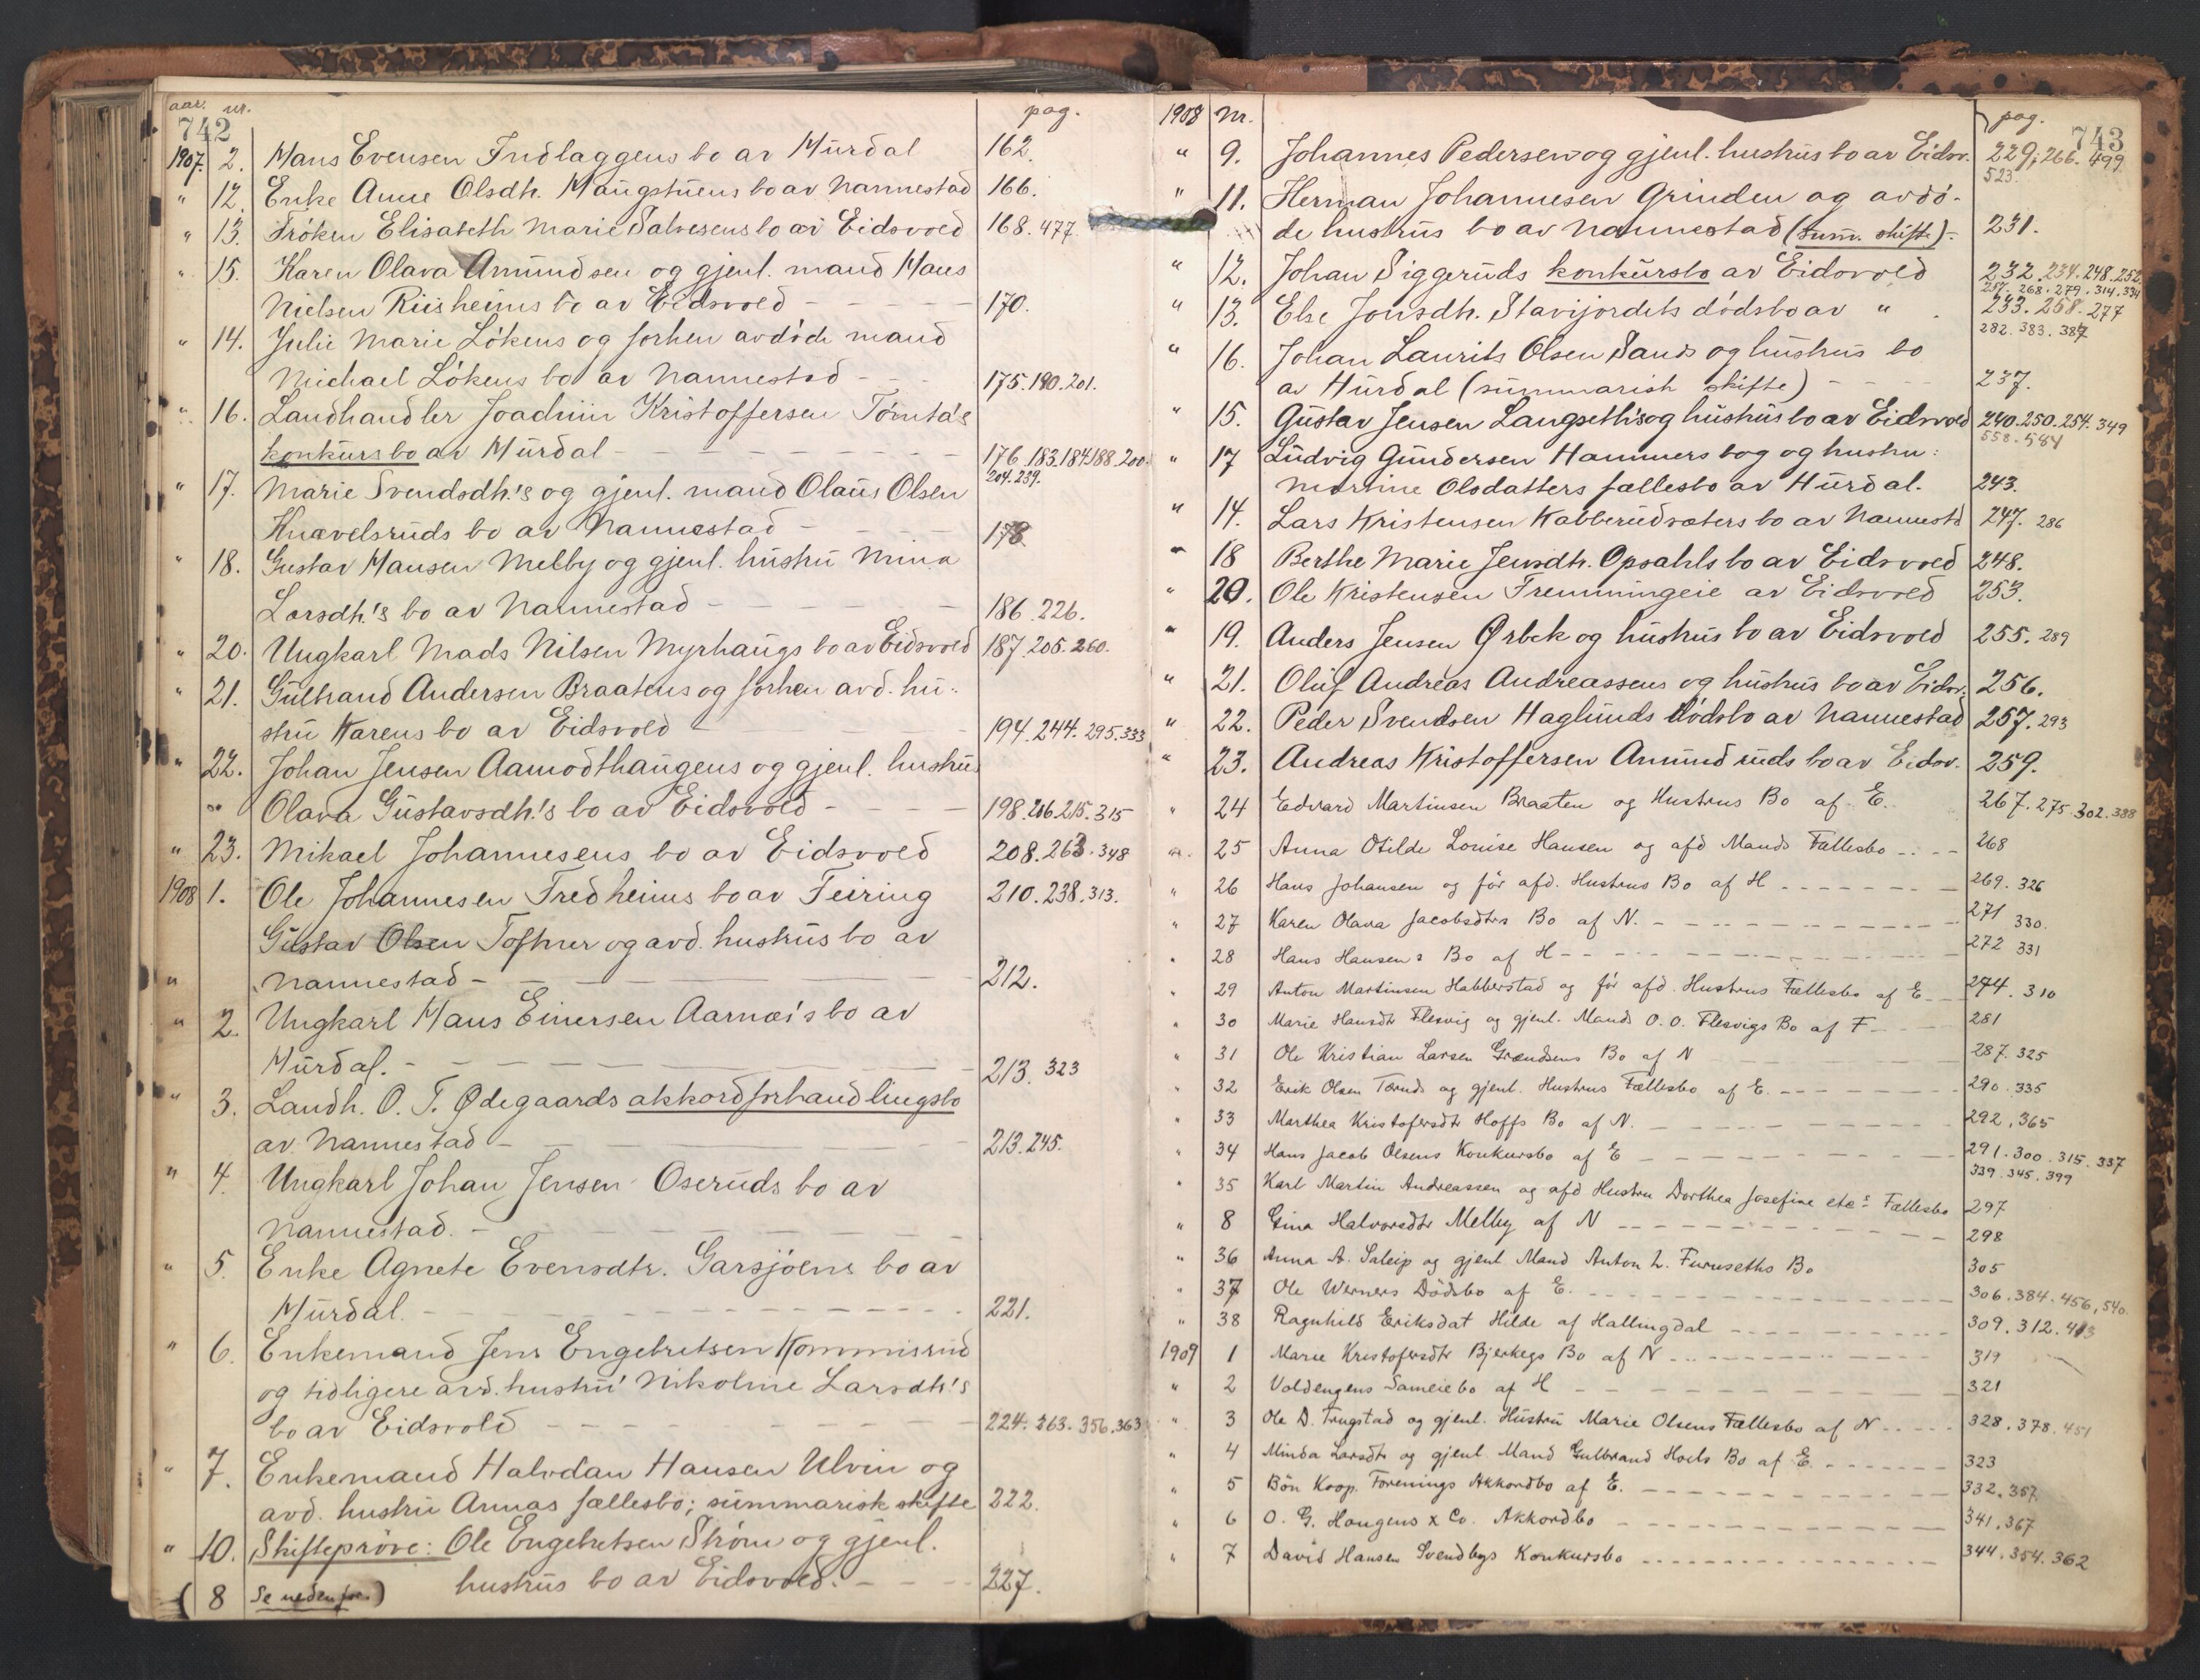 aar. nr. pag.
742
1907. 2. Hans Evensen Indlaggens bo av Hurdal 162.
" 12. Enke Anne Olsdh. Haugstuens bo av Nannestad 166.
" 13. Frøken Elisabeth Marie Salvesens bo av Eidsvold 168. 477
" 15. Karen Olava Amundsen og gjenl. mand Hans
Nielsen Riisheims bo av Eidsvold - - - - 170.
" 14. Julie Marie Løkens og forhen avdøde mand
Michael Løkens bo av Nannestad - - - 175. 190. 201.
" 16. Landhandler Joachim Kristoffersen Tømta's
konkursbo av Hurdal - - - - - 176. 183. 184. 188. 200.
204. 239.
" 17. Marie Svendsdh.'s og gjenl. mand Olaus Olsen
Knævelsruds bo av Nannestad - - - 178.
" 18. Gustav Hansen Melby og gjenl. hustru Mina
Larsdh.'s bo av Nannestad - - - - 186. 226.
" 20. Ungkarl Mads Nilsen Myrhaugs bo av Eidsvold 187. 205. 260.
" 21. Gulbrand Andersen Braatens og forhen avd. hu-
stru Karens bo av Eidsvold - - - 194. 244. 295. 333
" 22. Johan Jensen Aamodthaugens og gjenl. hustrus
" Olava Gustavsdh.'s bo av Eidsvold - - - 198. 206. 215. 315
" 23. Mikael Johannesens bo av Eidsvold 208. 263. 348
1908 1. Ole Johannesen Fredheims bo av Feiring 210. 238. 313.
Gustav Olsen Toftner og avd. hustrus bo av
" Nannestad - - - - - 212.
" 2. Ungkarl Hans Einersen Aarnæs's bo av
Hurdal. - - - - - 213. 323
" 3. Landh. O. T. Ødegaards akkordforhandlingsbo
av Nannestad - - - - 213. 245.
" 4. Ungkarl Johan Jensen Oseruds bo av
Nannestad. - - - - -
" 5. Enke Agnete Evensdtr. Garsjøens bo av
Hurdal. - - - - - 221.
" 6. Enkemand Jens Engebretsen Kommisrud
og tidligere avd. hustru Nikoline Larsdh's
bo av Eidsvold - - - - 224. 363. 356. 363
" 7. Enkemand Halvdan Hansen Ulvin og
avd. hustru Annas fællesbo; summarisk skifte 222.
" 10. Skifteprøve: Ole Engebretsen Strøm og gjenl.
hustrus bo av Eidsvold. - - - 227.
( 8 Se nedenfor.)
1908 Nr. pag.
743
" 9. Johannes Pedersen og gjenl. hustrus bo av Eidsv. 229, 266. 499
523.
" 11. Herman Johannesen Grinden og avdø-
de hustrus bo av Nannestad (sum. skifte) - 231.
" 12. Johan Siggeruds konkursbo av Eidsvold 232. 234. 248. 252
257. 268. 279. 314. 334
" 13. Else Jonsdh. Stavijordets dødsbo av " . 233. 258. 277
282. 383. 387
" 16. Johan Laurits Olsen Sands og hustrus bo
av Hurdal (summarisk skifte) - - - 237.
" 15. Gustav Jensen Langseth's og hustrus bo av Eidsvold 240. 250. 254. 349
558. 584
" 17 Ludvig Gundersen Hammers bog og hustru:
Martine Olsdatters fællesbo av Hurdal. 243.
" 14. Lars Kristensen Kabberudsæters bo av Nannestd 247. 286
" 18 Berthe Marie Jensdh. Opsahls bo av Eidsvold 248.
" 20. Ole Kristensen Fremmingeie av Eidsvold 253.
" 19. Anders Jensen Ørbek og hustrus bo av Eidsvold 255. 289
" 21. Oluf Andreas Andreassens og hustrus bo av Eidsv. 256.
" 22. Peder Svendsen Haglunds dødsbo av Nannestad 257. 293
" 23. Andreas Kristoffersen Amundruds bo av Eidsv. 259.
" 24 Edvard Martinsen Braaten og Hustrus Bo af E. 267. 275 302. 388
" 25 Anna Otilde Louise Hansen og afd Mands Fællesbo - - - 268
" 26 Hans Johansen og før afd. Hustrus Bo af H - - - - 269. 326
" 27 Karen Olava Jacobsdtrs Bo af N. - - - - - 271 330.
" 28 Hans Hansens Bo af H - - - - - 272 331
" 29 Anton Martinsen Habberstad og før afd. Hustrus Fællesbo af E - - 274. 310
" 30 Marie Hansdtr Flesvig og gjenl. Mands O. O. Flesvigs Bo af F - - - 281
" 31 Ole Kristian Larsen Grændsens Bo af N - - - 287. 325
" 32 Erik Olsen Tæruds og gjenl. Hustrus Fællesbo af E. - - - - 290. 335
" 33 Marthea Kristofersdtr Hoffs Bo af N. - - - - 292, 365
" 34 Hans Jacob Olsens Konkursbo af E - - - - 291. 300. 315. 337
339. 345. 399
" 35 Karl Martin Andreassen og afd Hustru Dorthea Josefine etc's Fællesbo 297
" 8 Gina Halvorsdtr Melby af N - - - - - 298
" 36 Anna A. Saleip og gjenl Mand Anton L. Furuseths Bo 305
" 37 Ole Werners Dødsbo af E. - - - - 306. 384. 456, 540.
" 38 Ragnhild Eriksdat Hilde af Hallingdal - - - - 309. 312. 413
1909 1 Marie Kristofersdtr Bjerkegs Bo af N - - - - 319
" 2 Voldengens Sameiebo af H - - - - 321
" 3 Ole D. Trugstad og gjenl. Hustru Marie Olsens Fællesbo af N - - - 328. 378. 451
" 4 Minda Larsdtr og gjenl. Mand Gulbrand Hoels Bo af E. - - - - 323
" 5 Bøn Koop. Forenings Akkordbo af E. - - - - 332. 357.
" 6 O. G. Haugens & Co. Akkordbo - - - - 341. 367
" 7 David Hansen Svendbys Konkursbo - - - - 344. 354. 362